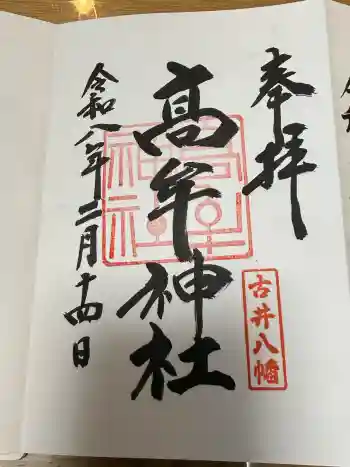 奉拝
古井八幡
髙牟神社
令和八年二月十四日